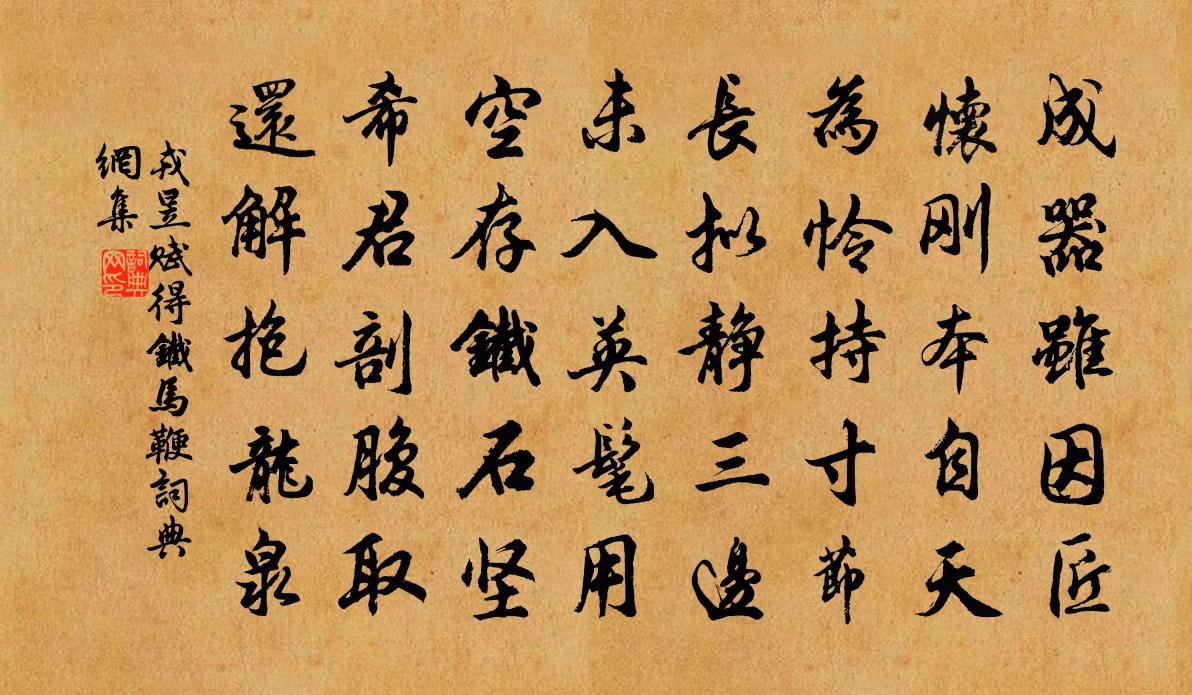 成器雖因匠
懷剛本自天
為怜持寸節
長拟静三邊
未入英髦用
空存鐵石堅
希君剖腹取
還解抱龍泉
戎昱賦得鐵馬鞭詞典
網集
詞典
网印